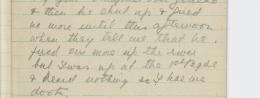 & then he shut up & fired
no more until this afternoon
when they tell me that he
fired one more up the river
but I was up at the
& heard nothing so I have no
doubt